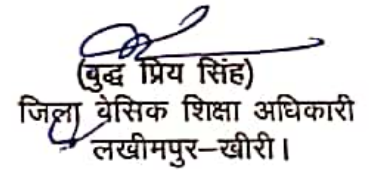 (बुद्ध प्रिय सिंह)
जिला वेसिक शिक्षा अधिकारी
लखीमपुर–खीरी।